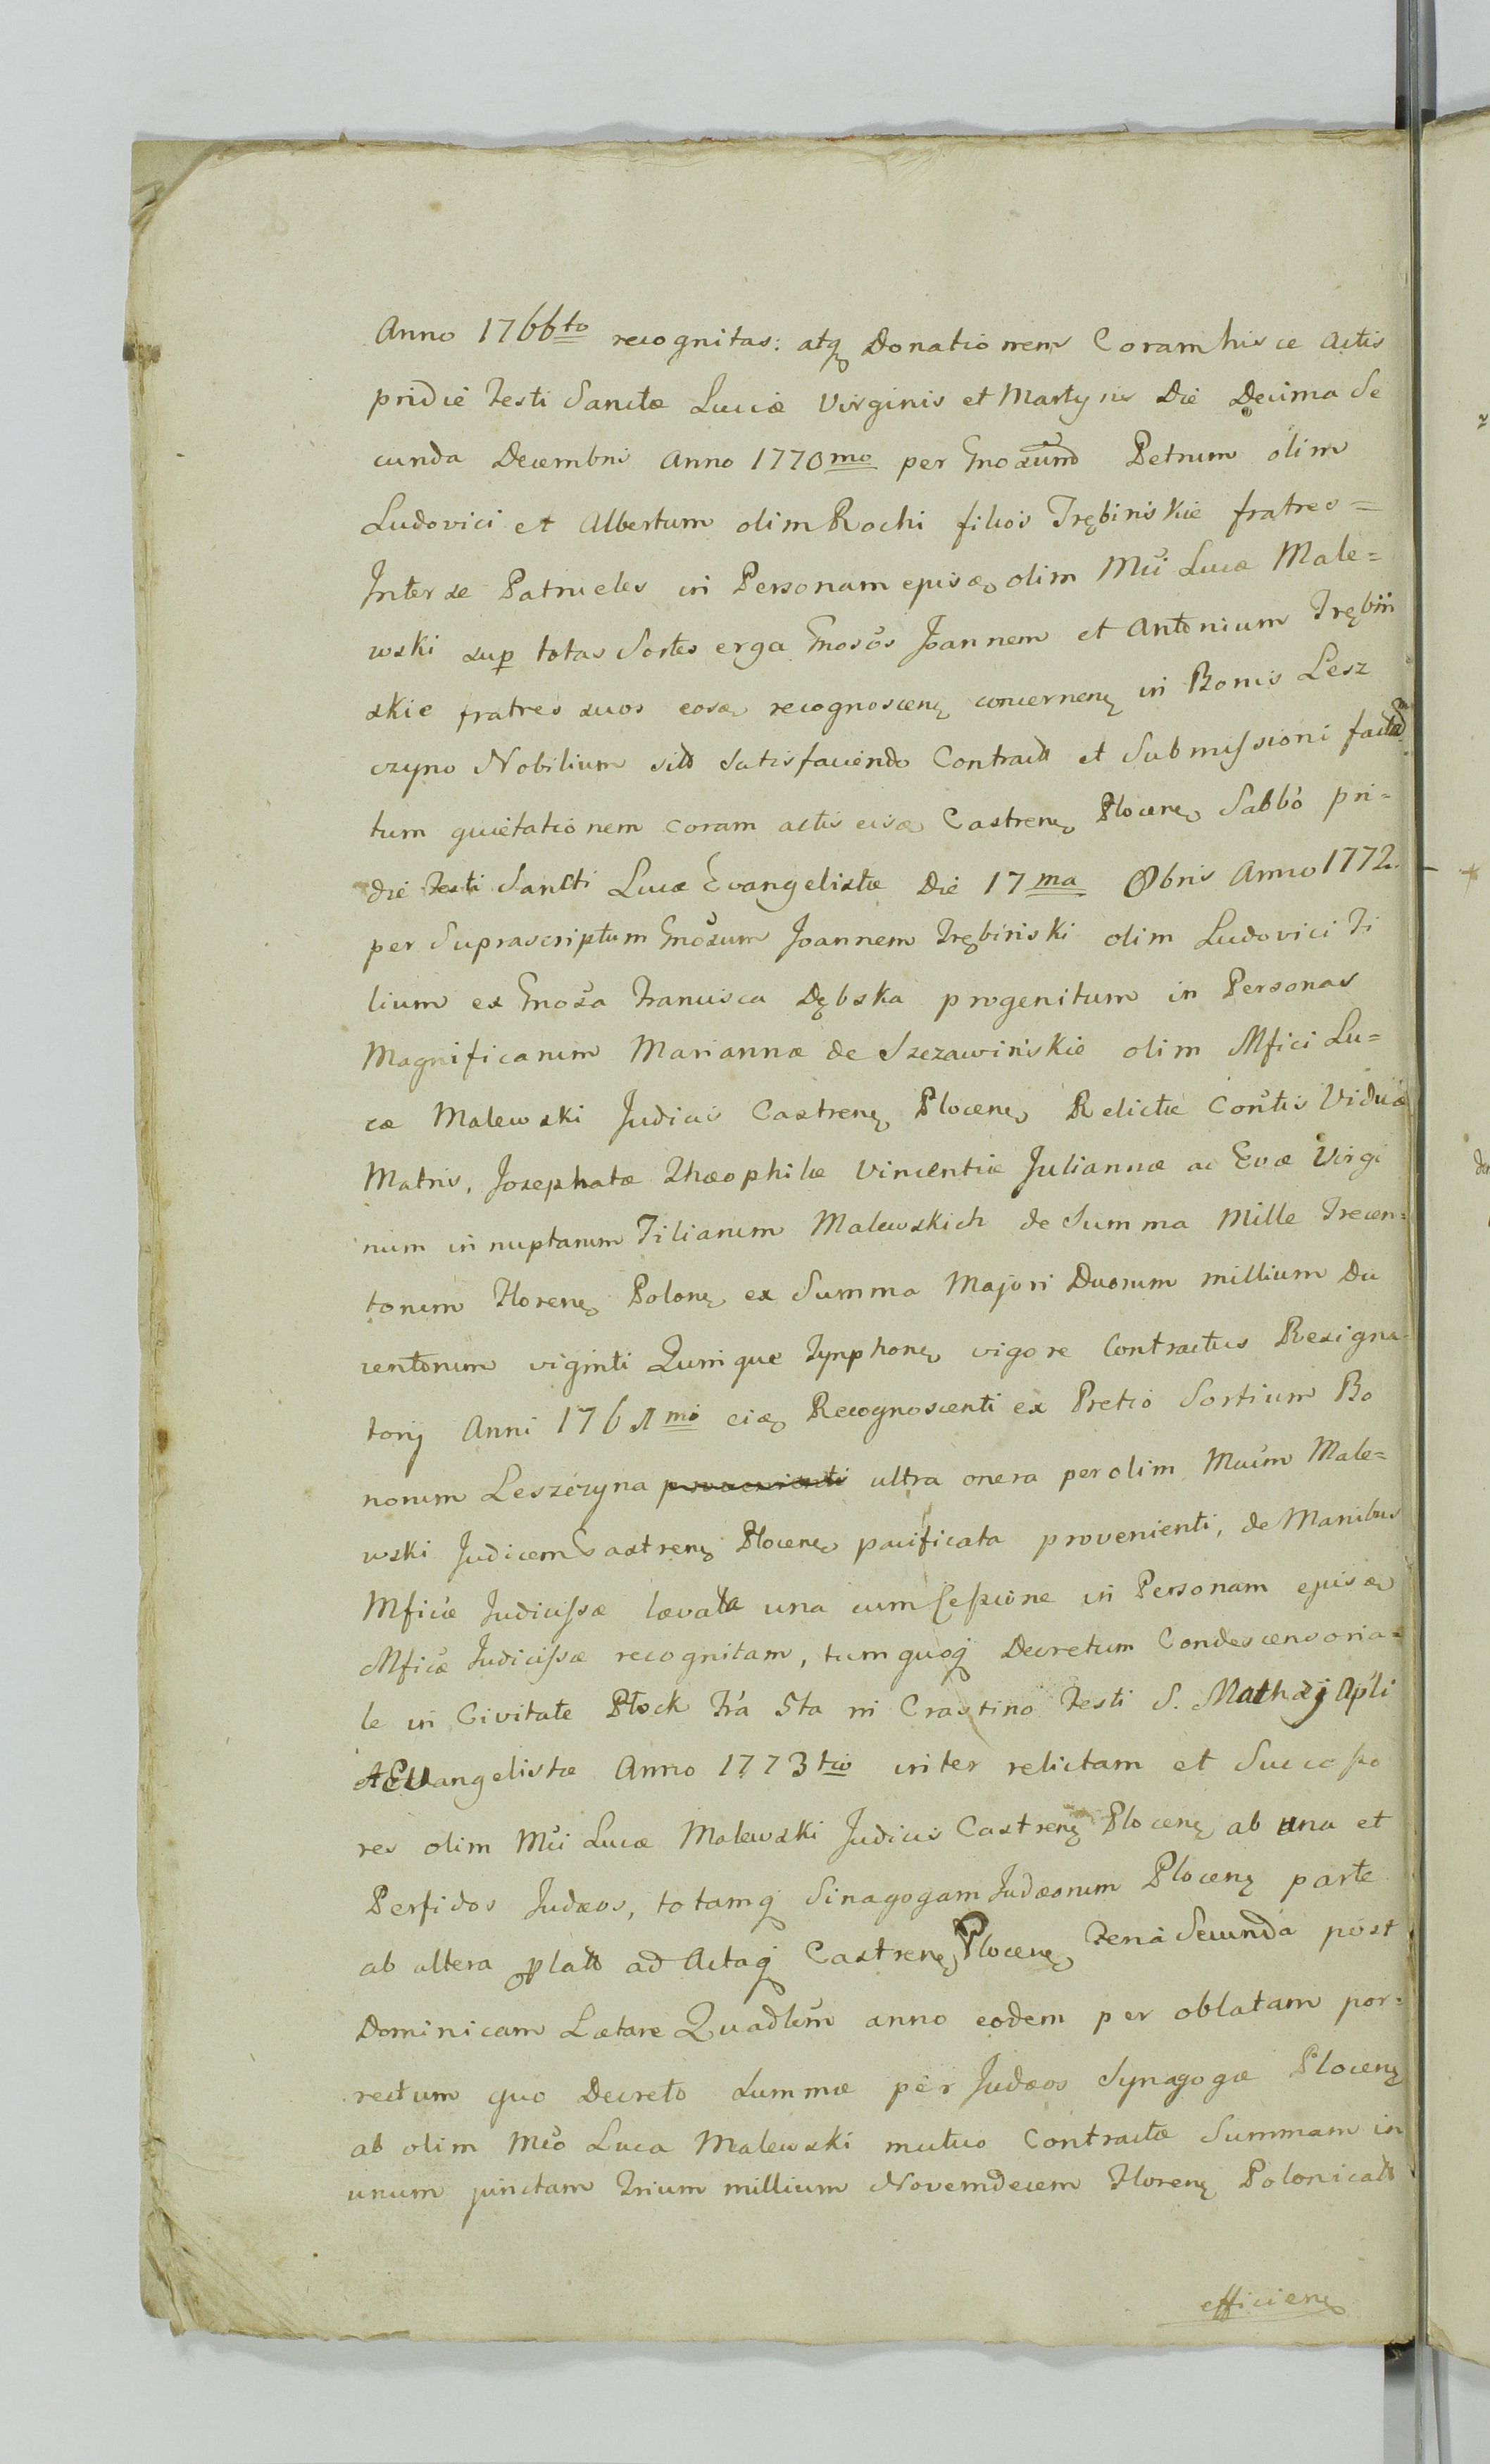 Anno 1766to recognitas: atq Donationem Coram hisce Actis
pridie Festi Sanctæ Luciæ Virginis et Martyris Die Decima Se
cunda Decembris Anno 1770mo per Gnosum Petrum olim
Ludovici et Albertum olim Rochi filios Trębinskie fratres=
Inter se Patrueles in Personam ejusd olim Mci Lucæ Male=
wski sup totas Sortes erga Gnosos Joannem et Antonium Trębiń
skie fratres suos eosd recognoscen concernen in Bonis Lesz
czyno Nobilium sitt Satisfaciendo Contractt et Submissioni factam
tum quietationem coram actis eisd Castren Plocen Sabbo pri=
die Festi Sancti Lucæ Evangelistæ Die 17ma Obris Anno 1772
per Suprascriptum Gnosum Joannem Trębiński olim Ludovici Fi
lium ex Gnosa Francisca Dębska progenitum in Personas
Magnificarum Mariannæ de Szczawińskie olim Mfici Lu=
cæ Malewski Judicis Castren Plocen Relictæ Contis Viduæ
Matris, Josephatæ Theophilæ Vincentiæ Juliannæ ac Evæ Virgi
num innuptarum Filiarum Malewskich de Summa Mille Trecen=
torum Floren Polon ex Summa Majori Duorum millium Du
centorum viginti Quinque Tynphon vigore Contractus Resigna=
torij Anni 1761mo eid Recognoscenti ex Pretio Sortium Bo
norum Leszczyna ultra onera per olim Mcum Male=
wski Judicem Castren Plocen pacificata provenienti, de Manibus
Mficæ Judicissæ lævata una cum Cessione in Personam ejusd
Mficæ Judicissæ recognitam, tum quoq Decretum Condescensoria=
le in Civitate Płock Fra 5ta in Crastino Festi S. Mathæj Apli
et Evangelistæ Anno 1773tio inter relictam et Successo
res olim Mci Lucæ Malewski Judicis Castren Plocen ab una et
Perfidos Judæos, totamq Sinagogam Judæorum Plocen parte
ab altera platt ad Actaq Castren Plocen Feria Secunda post
Dominicam Lætare Quadlem anno eodem per oblatam por=
rectum quo Decreto summæ per Judæos Synagogæ Plocen
ab olim Mco Luca Malewski mutuo Contractæ Summam in
unum junctam Trium millium Novemdecem Floren Polonicatt
efficien